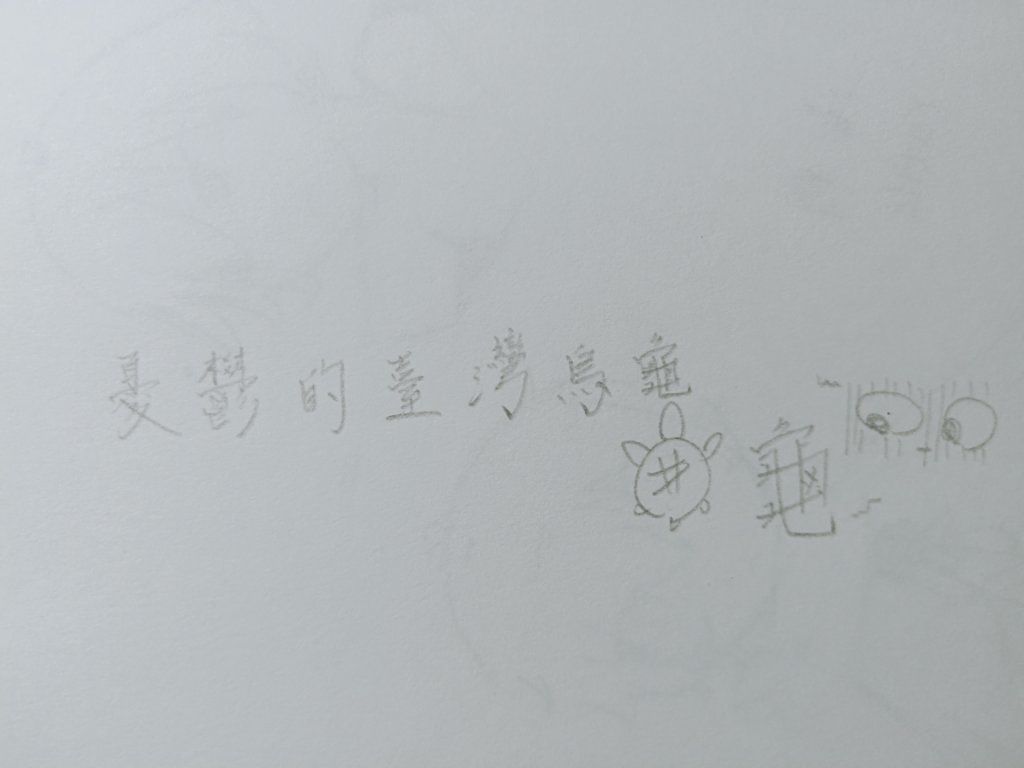 憂鬱的臺灣烏龜
龜